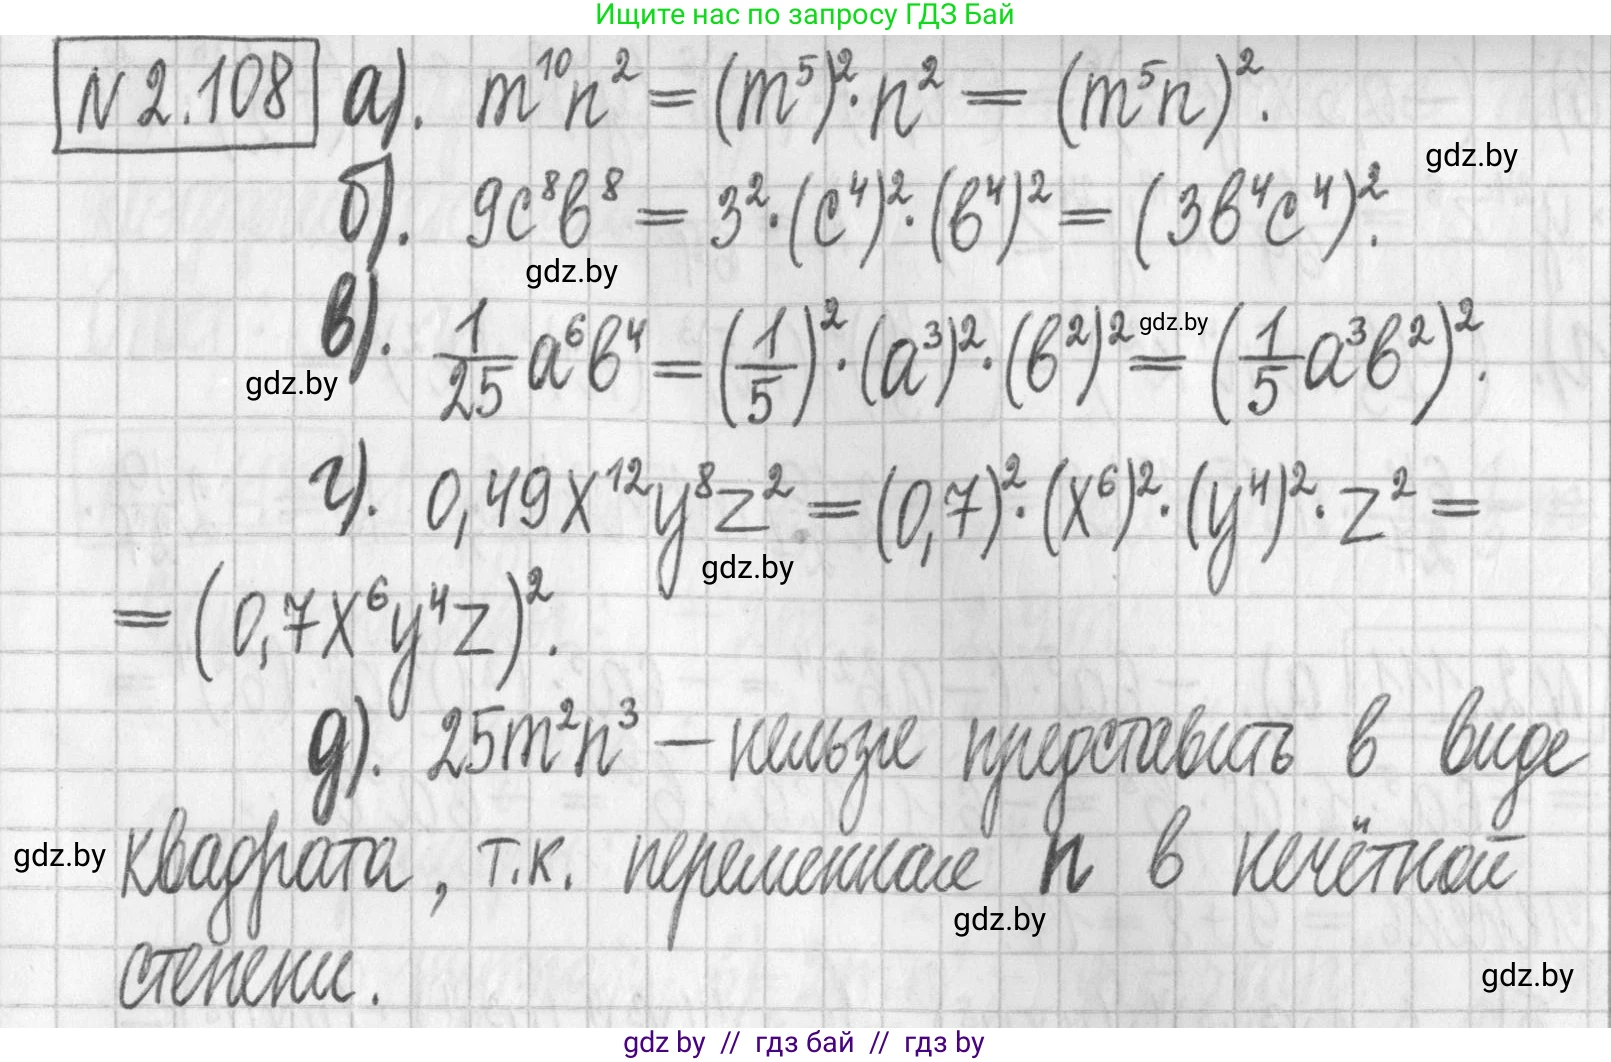 Ищите нас по запросу ГДЗ Бай
N 2.108 а). m¹⁰n² = (m⁵)²·n² = (m⁵n)².
gdz.by
б). 9c⁸b⁸ = 3²·(c⁴)²·(b⁴)² = (3b⁴c⁴)².
gdz.by
в). 1/25 a⁶b⁴ = (1/5)²·(a³)²·(b²)² = (1/5 a³b²)².
gdz.by
gdz.by
г). 0,49x¹²y⁸z² = (0,7)²·(x⁶)²·(y⁴)²·z² =
gdz.by
= (0,7x⁶y⁴z)².
д). 25m²n³ — нельзя представить в виде
gdz.by квадрата, т.к. переменная n в нечётной
gdz.by
степени.
gdz.by
gdz.by // гдз бай // гдз by